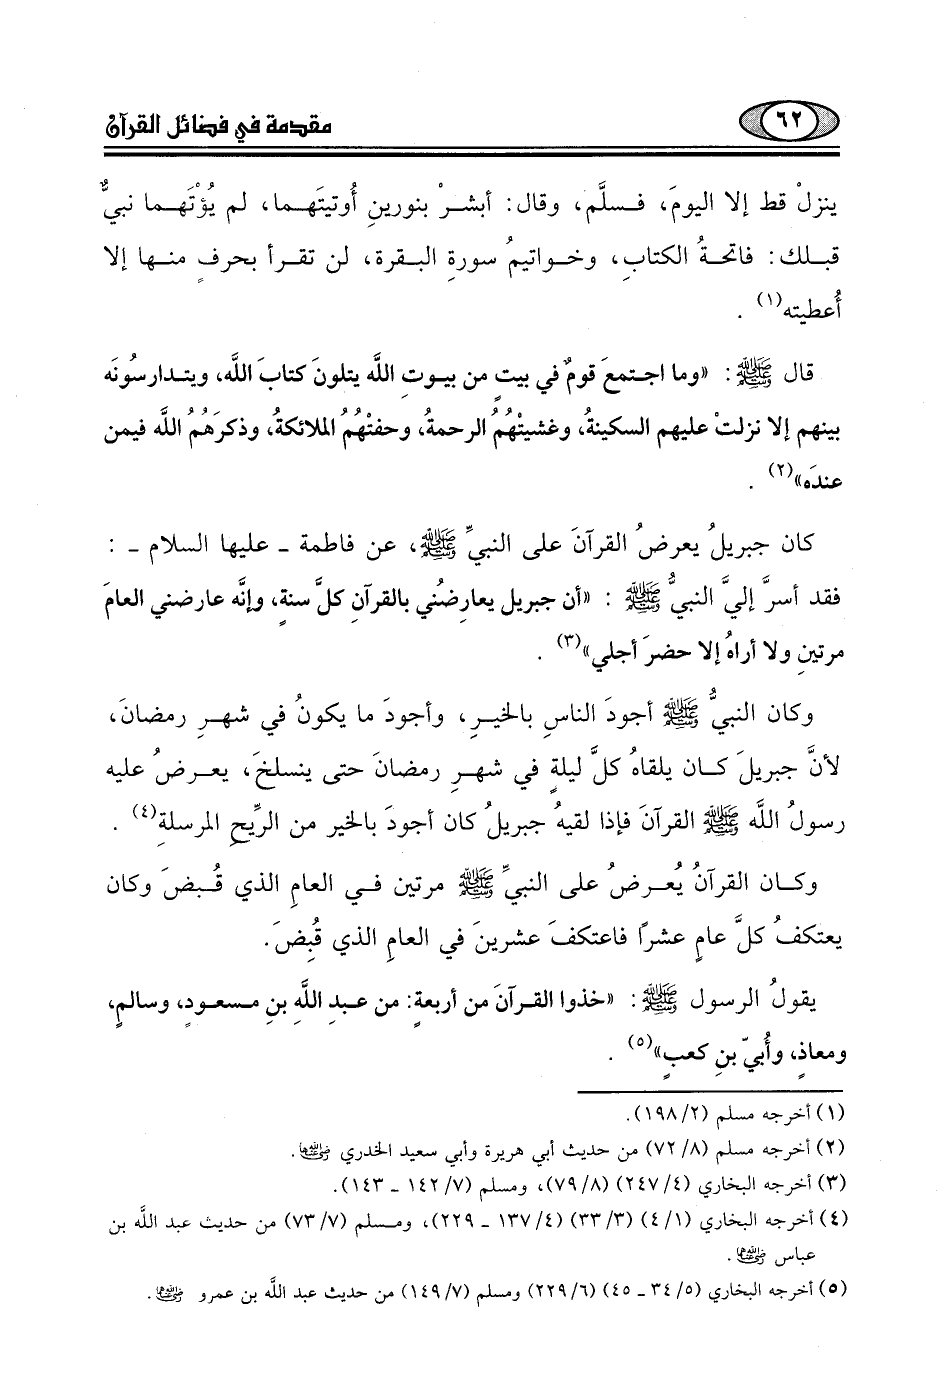 ٦٢
مقدمة في فضائل القرآن
ينزلْ قط إلا اليومَ، فسلَّم، وقال: أبشرْ بنورينِ أُوتيتَهما، لم يُؤْتَهما نبيٌّ
قبلك: فاتحةُ الكتابِ، وخواتيمُ سورةِ البقرة، لن تقرأ بحرفٍ منها إلا
أُعطيته(١) .
قال ﷺ: «وما اجتمعَ قومٌ في بيتٍ من بيوتِ اللَّه يتلونَ كتابَ اللَّه، ويتدارسُونَه
بينهم إلا نزلتْ عليهم السكينةُ، وغشيتْهُمُ الرحمةُ، وحفتْهُمُ الملائكةُ، وذكرَهُمُ اللَّه فيمن
عندَه»(٢) .
كان جبريلُ يعرضُ القرآنَ على النبيِّ ﷺ، عن فاطمة ـ عليها السلام ـ :
فقد أسرَّ إليَّ النبيُّ ﷺ : «أن جبريل يعارضُني بالقرآنِ كلَّ سنةٍ، وإنَّه عارضني العامَ
مرتينِ ولا أراهُ إلا حضرَ أجلي»(٣) .
وكان النبيُّ ﷺ أجودَ الناسِ بالخيرِ، وأجودَ ما يكونُ في شهرِ رمضانَ،
لأنَّ جبريلَ كان يلقاهُ كلَّ ليلةٍ في شهرِ رمضانَ حتى ينسلخَ، يعرضُ عليه
رسولُ اللَّه ﷺ القرآنَ فإذا لقيهُ جبريلُ كان أجودَ بالخير من الرِّيحِ المرسلةِ(٤) .
وكان القرآنُ يُعرضُ على النبيِّ ﷺ مرتين في العامِ الذي قُبضَ وكان
يعتكفُ كلَّ عامٍ عشرًا فاعتكفَ عشرينَ في العامِ الذي قُبِضَ.
يقولُ الرسول ﷺ: «خذوا القرآنَ من أربعةٍ: من عبدِ اللَّهِ بنِ مسعودٍ، وسالمٍ،
ومعاذٍ، وأُبيّ بنِ كعبٍ»(٥) .
(١) أخرجه مسلم (٢/ ١٩٨).
(٢) أخرجه مسلم (٨/ ٧٢) من حديث أبي هريرة وأبي سعيد الخدري رضي الله عنهما.
(٣) أخرجه البخاري (٤/ ٢٤٧) (٨/ ٧٩)، ومسلم (٧/ ١٤٢ ـ ١٤٣).
(٤) أخرجه البخاري (١/ ٤) (٣/ ٣٣) (٤/ ١٣٧ ـ ٢٢٩)، ومسلم (٧/ ٧٣) من حديث عبد اللَّه بن
عباس رضي الله عنهما .
(٥) أخرجه البخاري (٥/ ٣٤ ـ ٤٥) (٦/ ٢٢٩) ومسلم (٧/ ١٤٩) من حديث عبد اللَّه بن عمرو رضي الله عنهما .